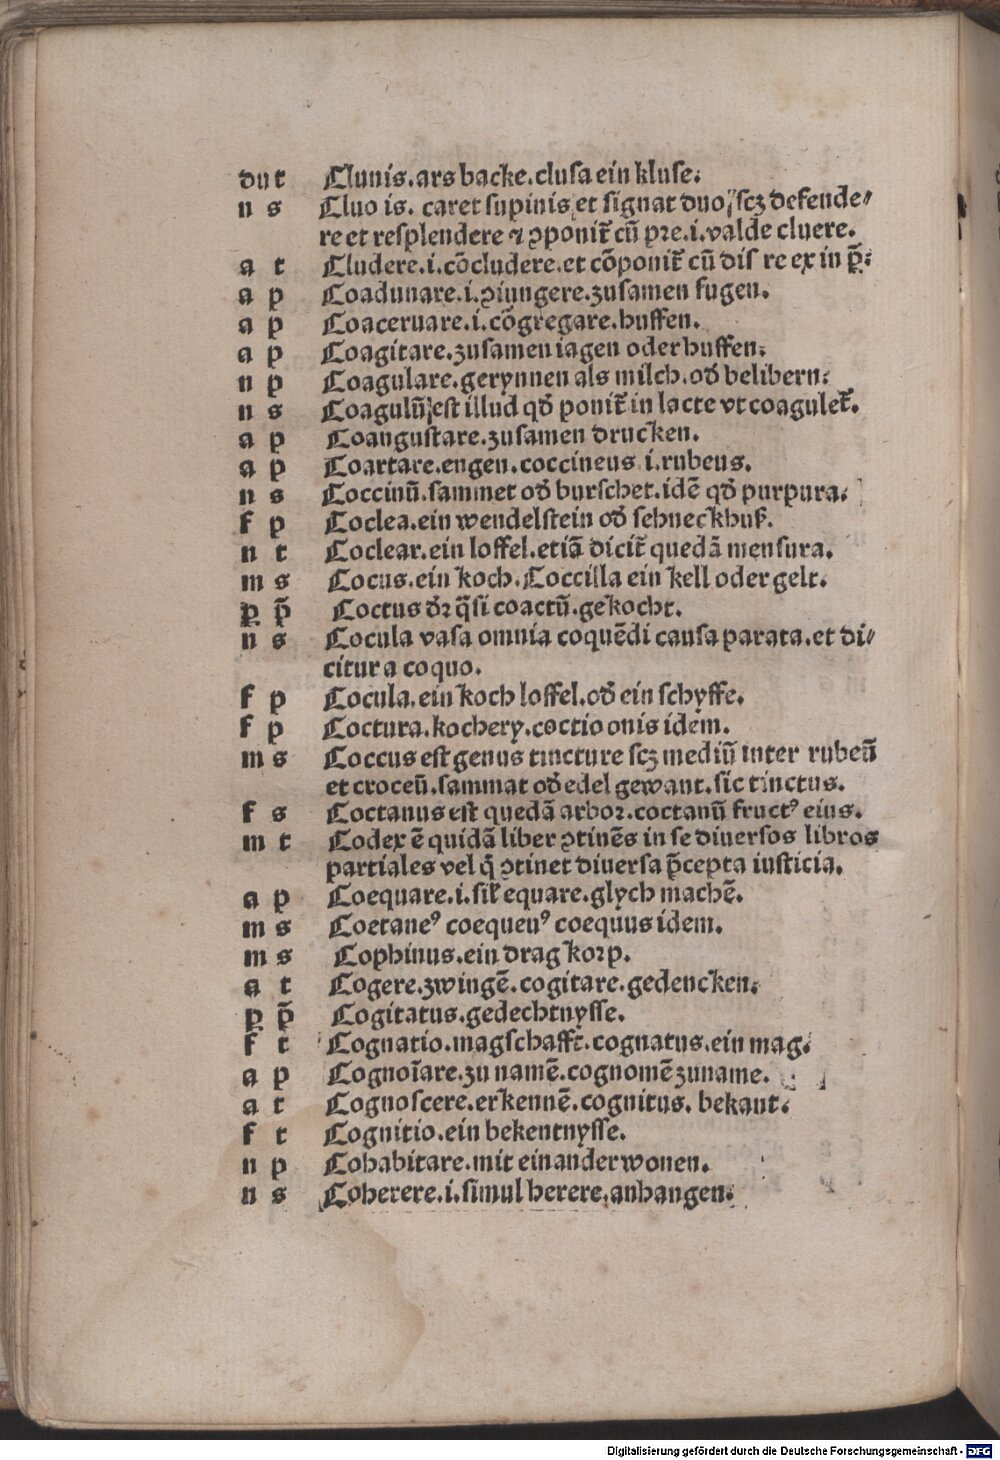 du t Clunis.ars backe.clusa ein kluse.
n s Cluo is. caret supinis et signat duo scꝫ defende⸗
re et resplendere ⁊ ꝯponit᷑ cū pre.i.valde cluere.
a t Cludere.i.cōcludere.et cōponit᷑ cū dis re ex in p̄.
a p Coadunare.i.ꝯiungere.zusamen fugen.
a p Coaceruare.i.cōgregare.huffen.
a p Coagitare.zusamen iagen oder huffen.
n p Coagulare.gerynnen als milch.od̕ belibern.
n s Coagulū est illud qd̕ ponit᷑ in lacte vt coagulet᷑.
a p Coangustare.zusamen drucken.
a p Coartare.engen.coccineus i.rubeus.
n s Coccinū.sammet od̕ burschet.idē qd̕ purpura.
f p Coclea.ein wendelstein od̕ schneckhuß.
n t Coclear.ein loffel.etiā dicit᷑ quedā mensura.
m s Cocus.ein koch.Coccilla ein kell oder gelt.
ꝑ p̄ Coctus dꝛ q̄si coactū.gekocht.
n s Cocula vasa omnia coquēdi causa parata.et di⸗
citur a coquo.
f p Cocula.ein koch loffel.od̕ ein schyffe.
f p Coctura.kochery.coctio onis idem.
m s Coccus est genus tincture scꝫ mediū inter rubeū
et croceū.sammat od̕ edel gewant.sic tinctus.
f s Coctanus est quedā arbor.coctanū fruct⁹ eius.
m t Codex ē quidā liber ꝯtinēs in se diuersos libros
partiales vel q̄ ꝯtinet diuersa p̄cepta iusticia.
a p Coequare.i.sil̕ equare.glych machē.
m s Coetane⁹ coequeu⁹ coequus idem.
m s Cophinus.ein drag korp.
a t Cogere.zwingē.cogitare.gedencken.
ꝑ p̄ Cogitatus.gedechtnysse.
f t Cognatio.magschafft.cognatus.ein mag.
a p Cognoīare.zu namē.cognomē zuname.
a t Cognoscere.erkennē.cognitus. bekant.
f t Cognitio.ein bekentnysse.
n p Cohabitare.mit einander wonen.
n s Coherere.i.simul herere.anhangen.
Digitalisierung gefördert durch die Deutsche Forschungsgemeinschaft - DFG